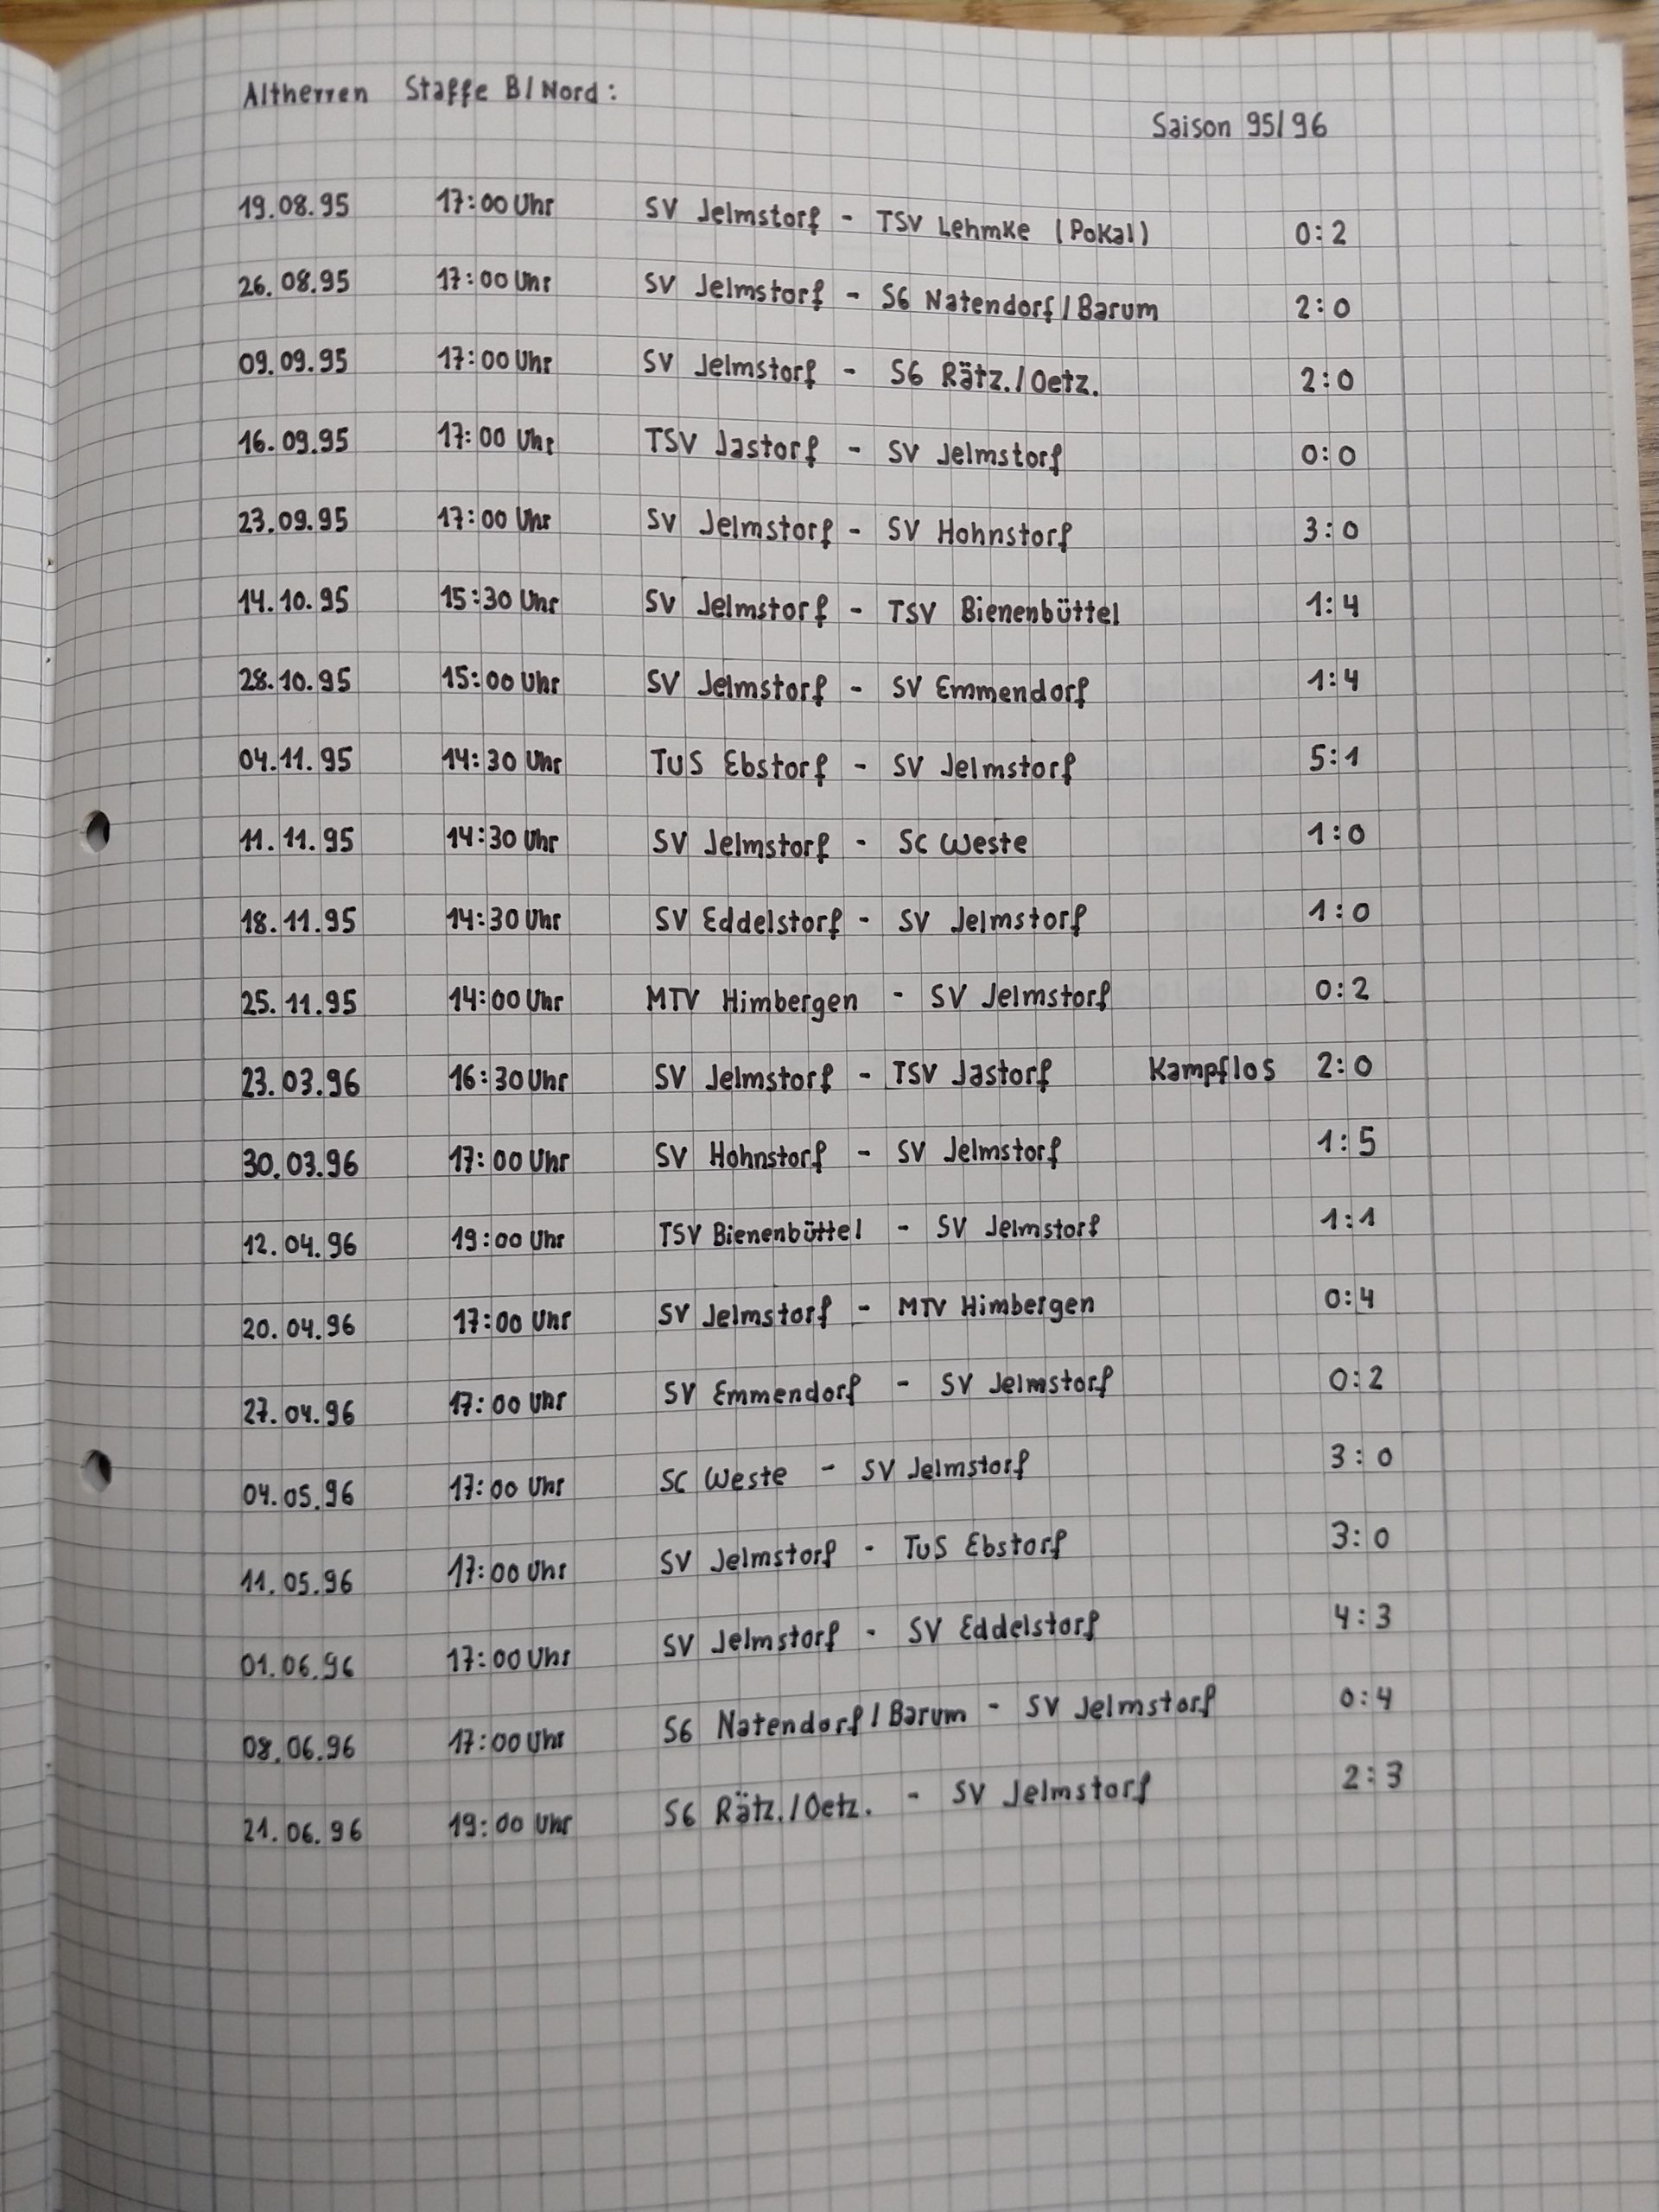 Altherren Staffe B/Nord:
Saison 95/96
19.08.95 17:00 Uhr SV Jelmstorf - TSV Lehmke (Pokal) 0:2
26.08.95 17:00 Uhr SV Jelmstorf - SG Natendorf/Barum 2:0
09.09.95 17:00 Uhr SV Jelmstorf - SG Rätz./Oetz. 2:0
16.09.95 17:00 Uhr TSV Jastorf - SV Jelmstorf 0:0
23.09.95 17:00 Uhr SV Jelmstorf - SV Hohnstorf 3:0
14.10.95 15:30 Uhr SV Jelmstorf - TSV Bienenbüttel 1:4
28.10.95 15:00 Uhr SV Jelmstorf - SV Emmendorf 1:4
04.11.95 14:30 Uhr TuS Ebstorf - SV Jelmstorf 5:1
11.11.95 14:30 Uhr SV Jelmstorf - SC Weste 1:0
18.11.95 14:30 Uhr SV Eddelstorf - SV Jelmstorf 1:0
25.11.95 14:00 Uhr MTV Himbergen - SV Jelmstorf 0:2
23.03.96 16:30 Uhr SV Jelmstorf - TSV Jastorf Kampflos 2:0
30.03.96 17:00 Uhr SV Hohnstorf - SV Jelmstorf 1:5
12.04.96 19:00 Uhr TSV Bienenbüttel - SV Jelmstorf 1:1
20.04.96 17:00 Uhr SV Jelmstorf - MTV Himbergen 0:4
27.04.96 17:00 Uhr SV Emmendorf - SV Jelmstorf 0:2
04.05.96 17:00 Uhr SC Weste - SV Jelmstorf 3:0
11.05.96 17:00 Uhr SV Jelmstorf - TuS Ebstorf 3:0
01.06.96 17:00 Uhr SV Jelmstorf - SV Eddelstorf 4:3
08.06.96 17:00 Uhr SG Natendorf/Barum - SV Jelmstorf 0:4
21.06.96 19:00 Uhr SG Rätz./Oetz. - SV Jelmstorf 2:3